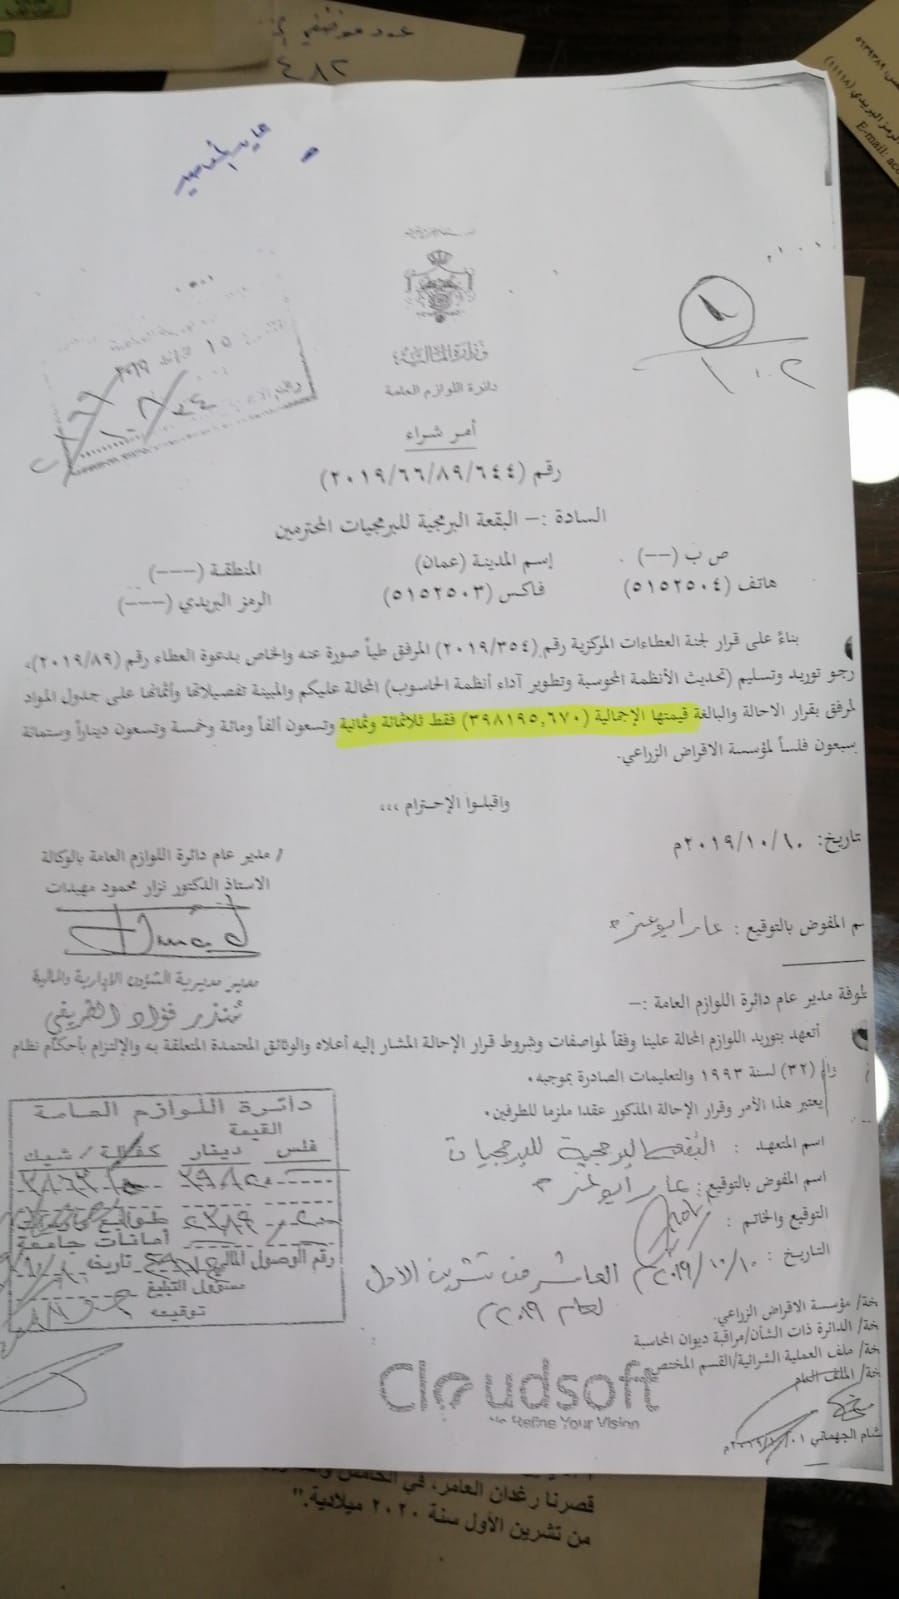 عدد موظفي
٤٨٢
E-mail: acc
وزارة المالية
دائرة اللوازم العامة
أمر شراء
رقم (٢٠١٩/٦٦/٨٩/٦٤٤)
السادة :– البقعة البرمجية للبرمجيات المحترمين
ص ب (--) إسم المدينة (عمان) المنطقة (---)
هاتف (٥١٥٢٥٠٤) فاكس (٥١٥٢٥٠٣) الرمز البريدي (---)
بناءً على قرار لجنة العطاءات المركزية رقم (٢٠١٩/٣٥٤) المرفق طياً صورة عنه والخاص بدعوة العطاء رقم (٢٠١٩/٨٩)،
رجو توريد وتسليم (تحديث الأنظمة المحوسبة وتطوير آداء أنظمة الحاسوب) المحالة عليكم والمبينة تفصيلاتها وأثمانها على جدول المواد
لمرفق بقرار الاحالة والبالغة قيمتها الإجمالية (٣٩٨١٩٥,٦٧٠) فقط ثلاثمائة وثمانية وتسعون ألفاً ومائة وخمسة وتسعون ديناراً وستمائة
سبعون فلساً لمؤسسة الاقراض الزراعي.
واقبلوا الإحترام ،،،
تاريخ: ٢٠١٩/١٠/١٠م
/ مدير عام دائرة اللوازم العامة بالوكالة
الاستاذ الدكتور نزار محمود مهيدات
سم المفوض بالتوقيع :
مدير مديرية الشؤون الإدارية والمالية
منذر فؤاد الطريفي
طوفة مدير عام دائرة اللوازم العامة :–
أتعهد بتوريد اللوازم المحالة علينا وفقاً لمواصفات وشروط قرار الإحالة المشار إليه أعلاه والوثائق المعتمدة المتعلقة به والإلتزام بأحكام نظام
(٣٢) لسنة ١٩٩٣ والتعليمات الصادرة بموجبه.
يعتبر هذا الأمر وقرار الإحالة المذكور عقدا ملزما للطرفين.
اسم المتعهد : البقعة البرمجية للبرمجيات
اسم المفوض بالتوقيع :
التوقيع والخاتم :
التاريخ : ٢٠١٩/١٠/١٠ العاشر من تشرين الأول
لعام ٢٠١٩
دائرة اللوازم العامة
القيمة
فلس دينار كفالة/شيك
طوابع
أمانات جامعة
رقم الوصول المالي تاريخه
مسؤول التبليغ
توقيعه
خة/ مؤسسة الاقراض الزراعي.
خة/ الدائرة ذات الشأن/مراقبة ديوان المحاسبة
خة/ ملف العملية الشرائية/القسم المختص
خة/ الملف العام
Cloudsoft
We Refine Your Vision
شام الجهماني
قصرنا رغدان العامر، في الخامس
من تشرين الأول سنة ٢٠٢٠ ميلادية."